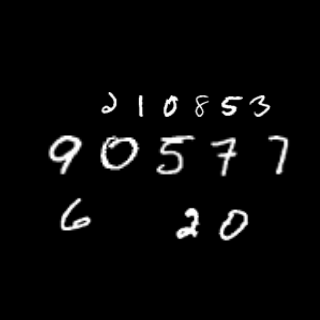 2 1 0 8 5 3
9 0 5 7 7
6 2 0